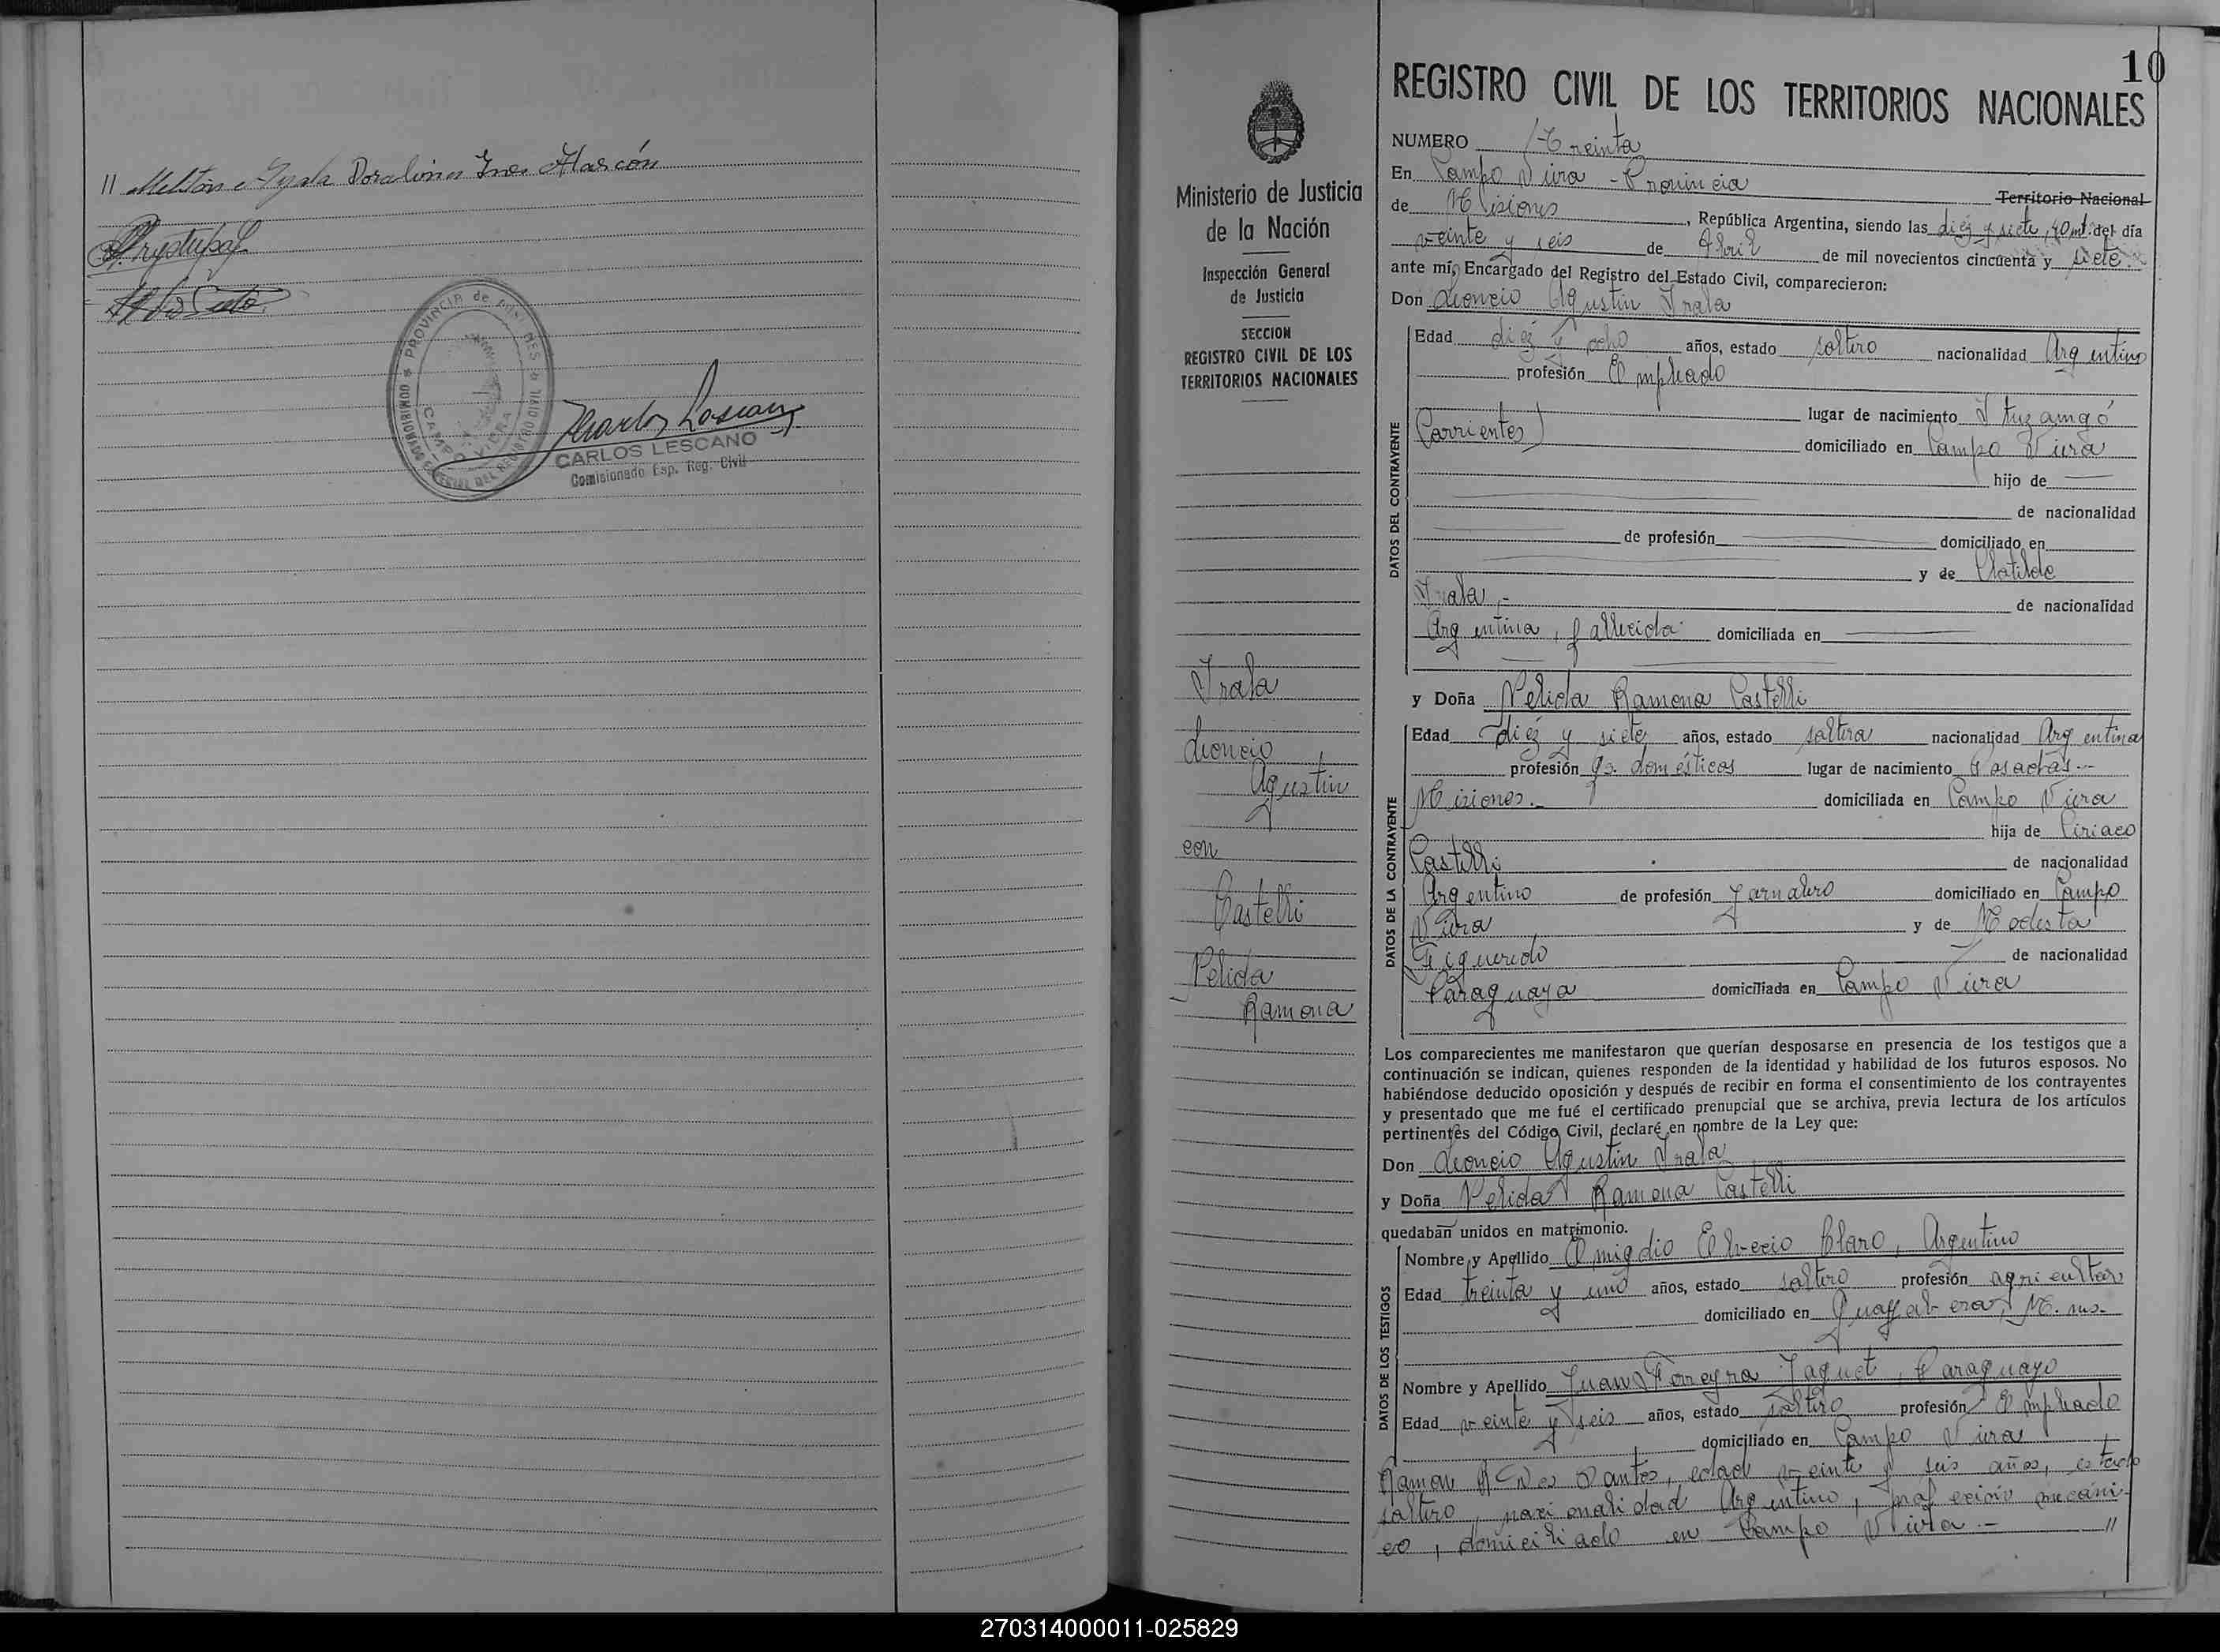 11 Melitón Ayala Doralina Ines Alarcón
PROVINCIA de MISIONES
CAMPO VIERA
CARLOS LESCANO
Comisionado Esp. Reg. Civil
10
REGISTRO CIVIL DE LOS TERRITORIOS NACIONALES
Ministerio de Justicia
de la Nación
Inspección General
de Justicia
SECCION
REGISTRO CIVIL DE LOS
TERRITORIOS NACIONALES
Irala
Leoncio
Agustin
con
Castelli
Nelida
Ramona
NUMERO Treinta
En Campo Viera - Provincia Territorio Nacional
de Misiones, República Argentina, siendo las diez y siete, 40 mt. del día
veinte y seis de Abril de mil novecientos cincuenta y siete
ante mí, Encargado del Registro del Estado Civil, comparecieron:
Don Leoncio Agustin Irala
DATOS DEL CONTRAYENTE
Edad diez y ocho años, estado soltero nacionalidad Argentino
profesión Empleado
lugar de nacimiento Ituzaingó
(Corrientes) domiciliado en Campo Viera
hijo de
de nacionalidad
de profesión domiciliado en
y de Clotilde
Irala.- de nacionalidad
Argentina, fallecida domiciliada en
y Doña Nelida Ramona Castelli
DATOS DE LA CONTRAYENTE
Edad diez y siete años, estado soltera nacionalidad Argentina
profesión Qs. domésticos lugar de nacimiento Posadas.-
Misiones.- domiciliada en Campo Viera
hija de Ciriaco
Castelli de nacionalidad
Argentino de profesión Jornalero domiciliado en Campo
Viera y de Modesta
Figueredo de nacionalidad
Paraguaya domiciliada en Campo Viera
Los comparecientes me manifestaron que querían desposarse en presencia de los testigos que a
continuación se indican, quienes responden de la identidad y habilidad de los futuros esposos. No
habiéndose deducido oposición y después de recibir en forma el consentimiento de los contrayentes
y presentado que me fué el certificado prenupcial que se archiva, previa lectura de los artículos
pertinentes del Código Civil, declaré en nombre de la Ley que:
Don Leoncio Agustin Irala
y Doña Nelida Ramona Castelli
quedaban unidos en matrimonio.
DATOS DE LOS TESTIGOS
Nombre y Apellido Emigdio Elvecio Claro, Argentino
Edad treinta y uno años, estado soltero profesión agricultor
domiciliado en
Nombre y Apellido Juan Ferreyra Jaquet, Paraguayo
Edad veinte y seis años, estado soltero profesión Empleado
domiciliado en Campo Viera
Ramon A. Dos Santos, edad veinte y seis años, estado
soltero, nacionalidad Argentino, profeción mecáni-
co, domiciliado en Campo Viera.- //
270314000011-025829